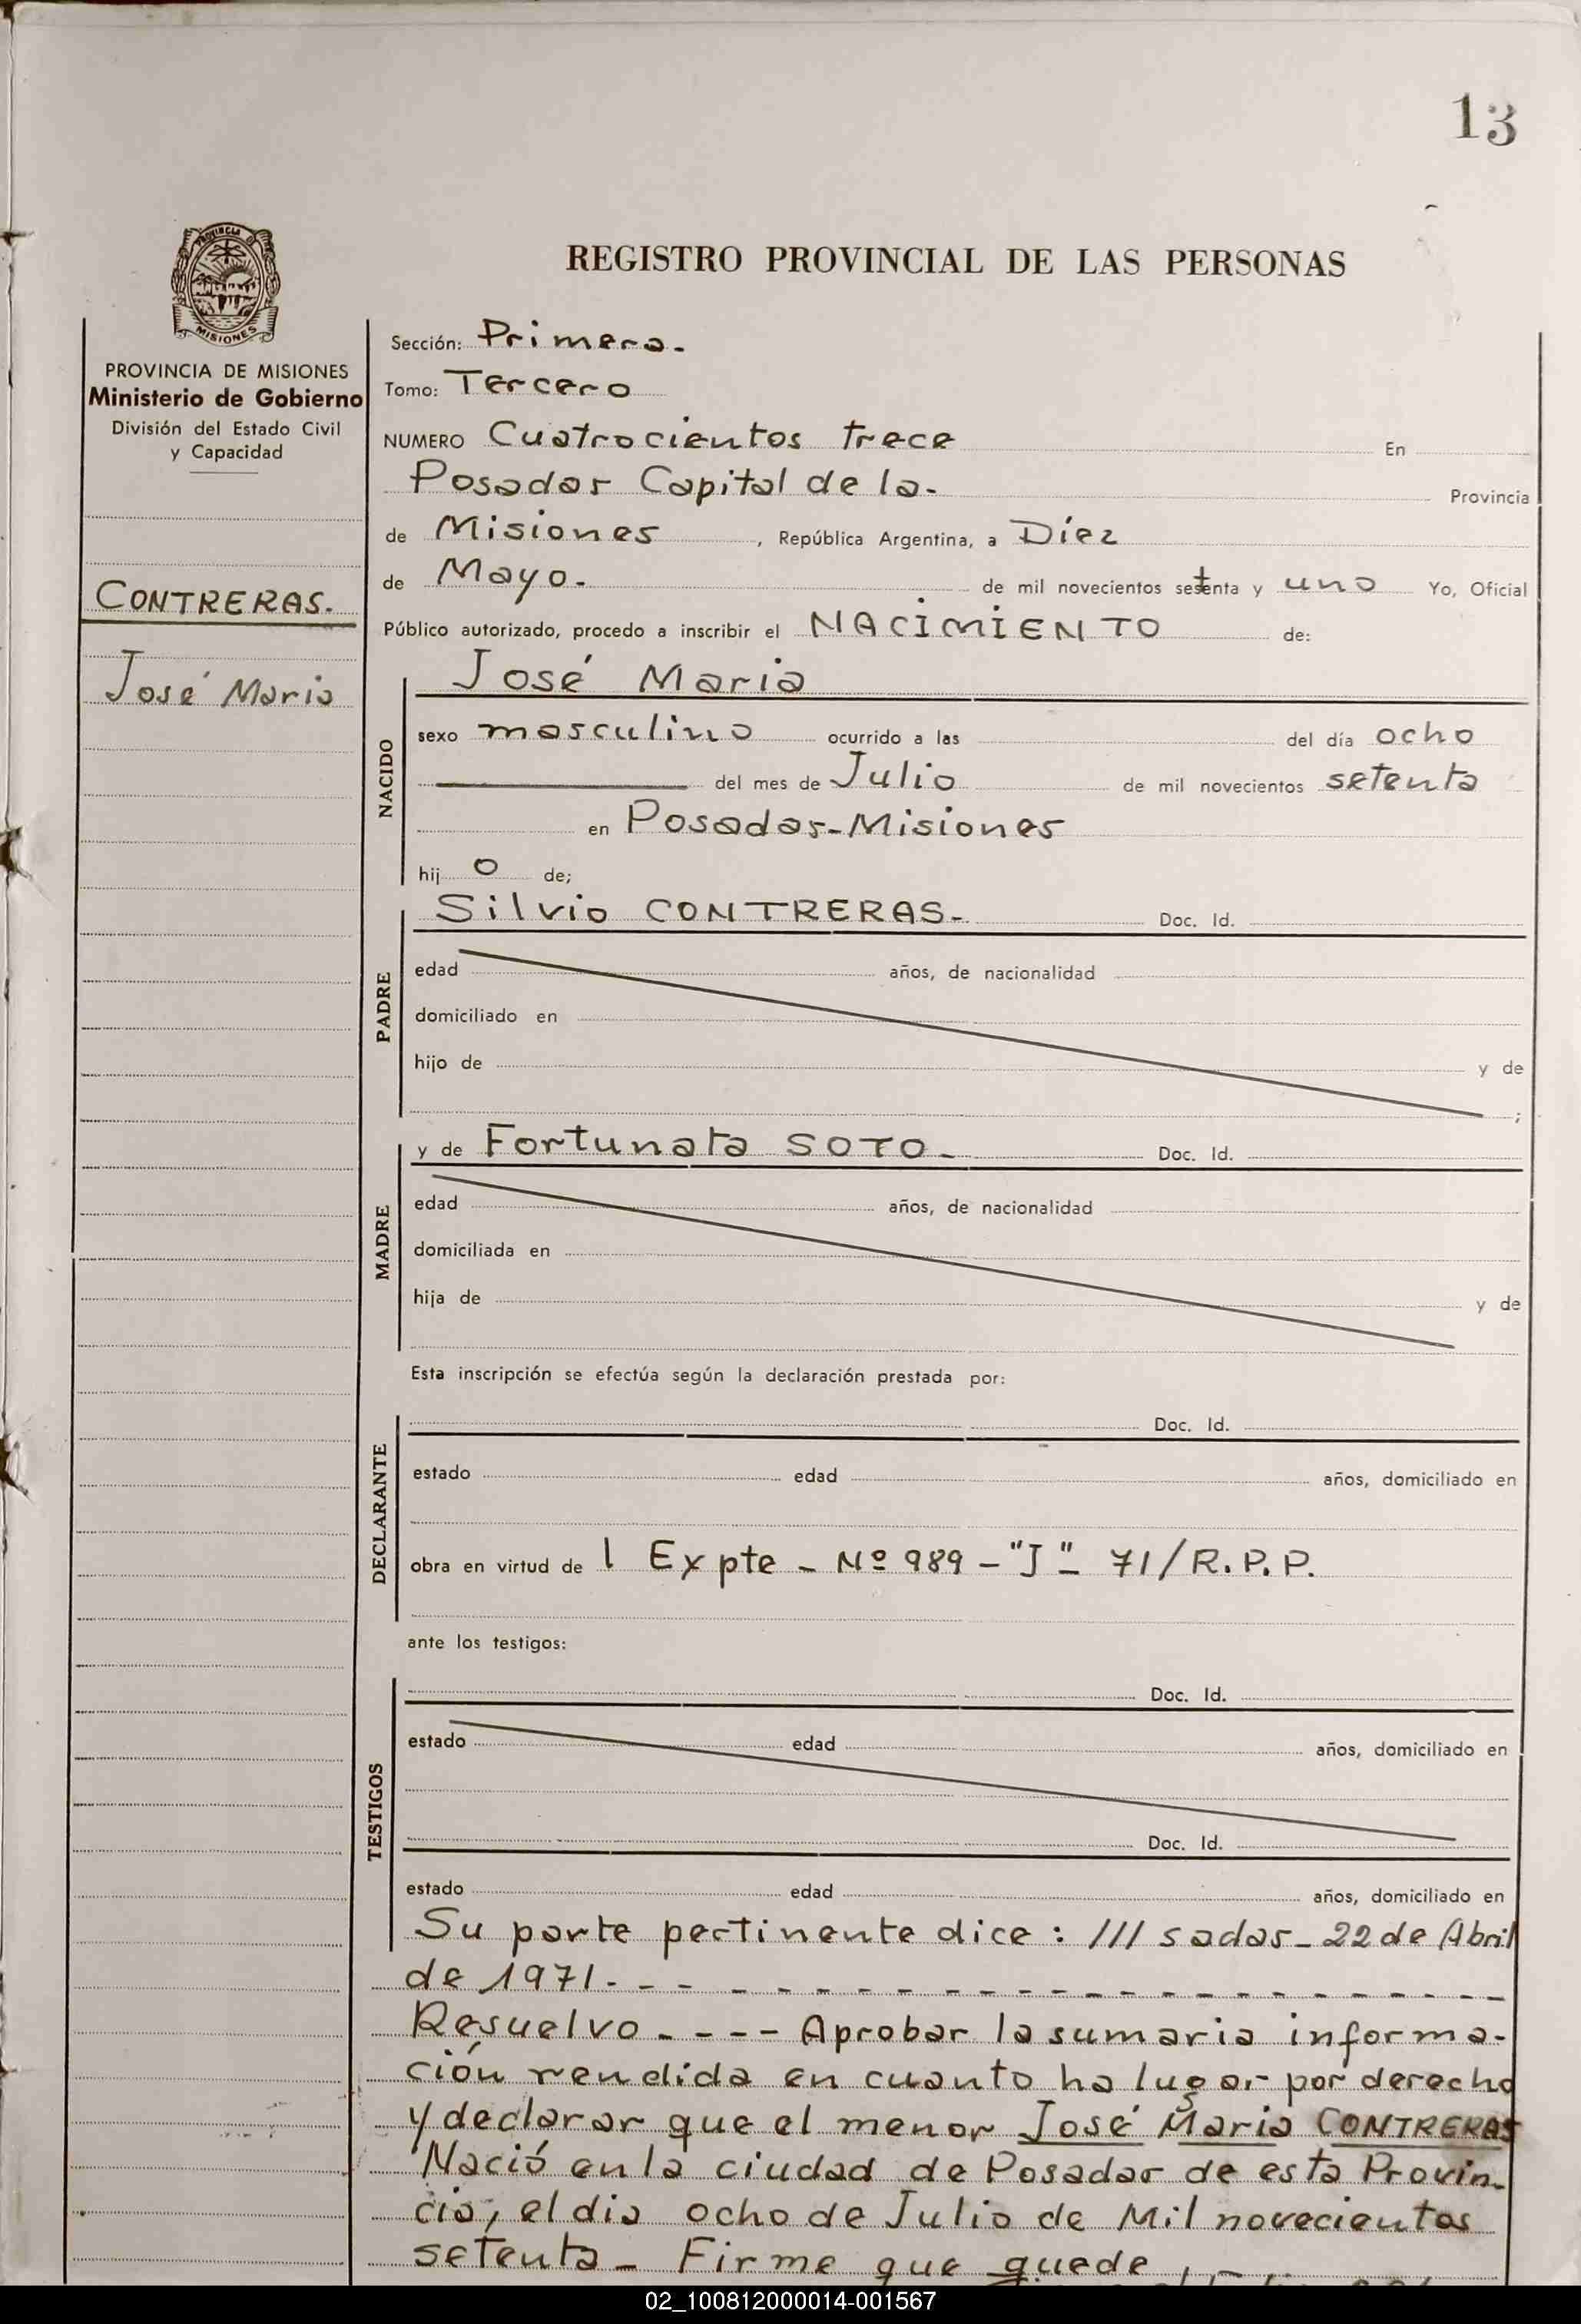 13
REGISTRO PROVINCIAL DE LAS PERSONAS
PROVINCIA DE
MISIONES
PROVINCIA DE MISIONES
Ministerio de Gobierno
División del Estado Civil
y Capacidad
CONTRERAS.
José Maria
Sección: Primera.
Tomo: Tercero
NUMERO Cuatrocientos trece En
Posadas Capital de la. Provincia
de Misiones, República Argentina, a Diez
de Mayo. de mil novecientos setenta y uno Yo, Oficial
Público autorizado, procedo a inscribir el NACIMIENTO de:
José Maria
NACIDO
sexo masculino ocurrido a las del día ocho
del mes de Julio de mil novecientos setenta
en Posadas-Misiones
hij o de;
PADRE
Silvio CONTRERAS- Doc. Id.
edad años, de nacionalidad
domiciliado en
hijo de y de
;
MADRE
y de Fortunata SOTO- Doc. Id.
edad años, de nacionalidad
domiciliada en
hija de y de
Esta inscripción se efectúa según la declaración prestada por:
DECLARANTE
Doc. Id.
estado edad años, domiciliado en
obra en virtud de l Expte - Nº 989 - "J" - 71/R.P.P.
ante los testigos:
TESTIGOS
Doc. Id.
estado edad años, domiciliado en
Doc. Id.
estado edad años, domiciliado en
Su parte pertinente dice: /// sadas - 22 de Abril
de 1971. - - - - - - - - - - - - - - - - - - -
Resuelvo. - - - - Aprobar la sumaria informa-
ción rendida en cuanto ha lugar por derecho
y declarar que el menor José Maria CONTRERAS
Nació en la ciudad de Posadas de esta Provin-
cia, el dia ocho de Julio de Mil novecientos
setenta - Firme que quede
02_100812000014-001567